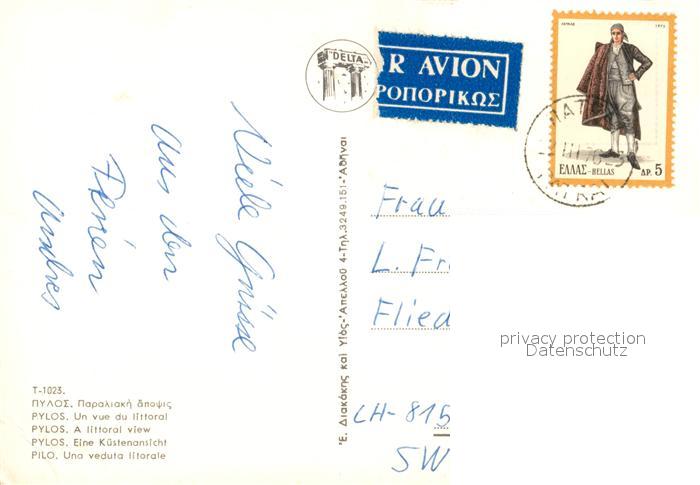 DELTA
R AVION
ΡΟΠΟΡΙΚΩΣ
1973
ΕΛΛΑΣ-HELLAS ΔΡ. 5
Viele Grüsse
aus den
Ferien
Andres
Frau
L. Fr
Flied
CH-815
SW
privacy protection
Datenschutz
Έ. Διακάκης καί Υἱός-Ἀπελλοῦ 4-Τηλ.3249.151-Ἀθῆναι
T-1023.
ΠΥΛΟΣ. Παραλιακή ἄποψις
PYLOS. Un vue du littoral
PYLOS. A littoral view
PYLOS. Eine Küstenansicht
PILO. Una veduta litorale